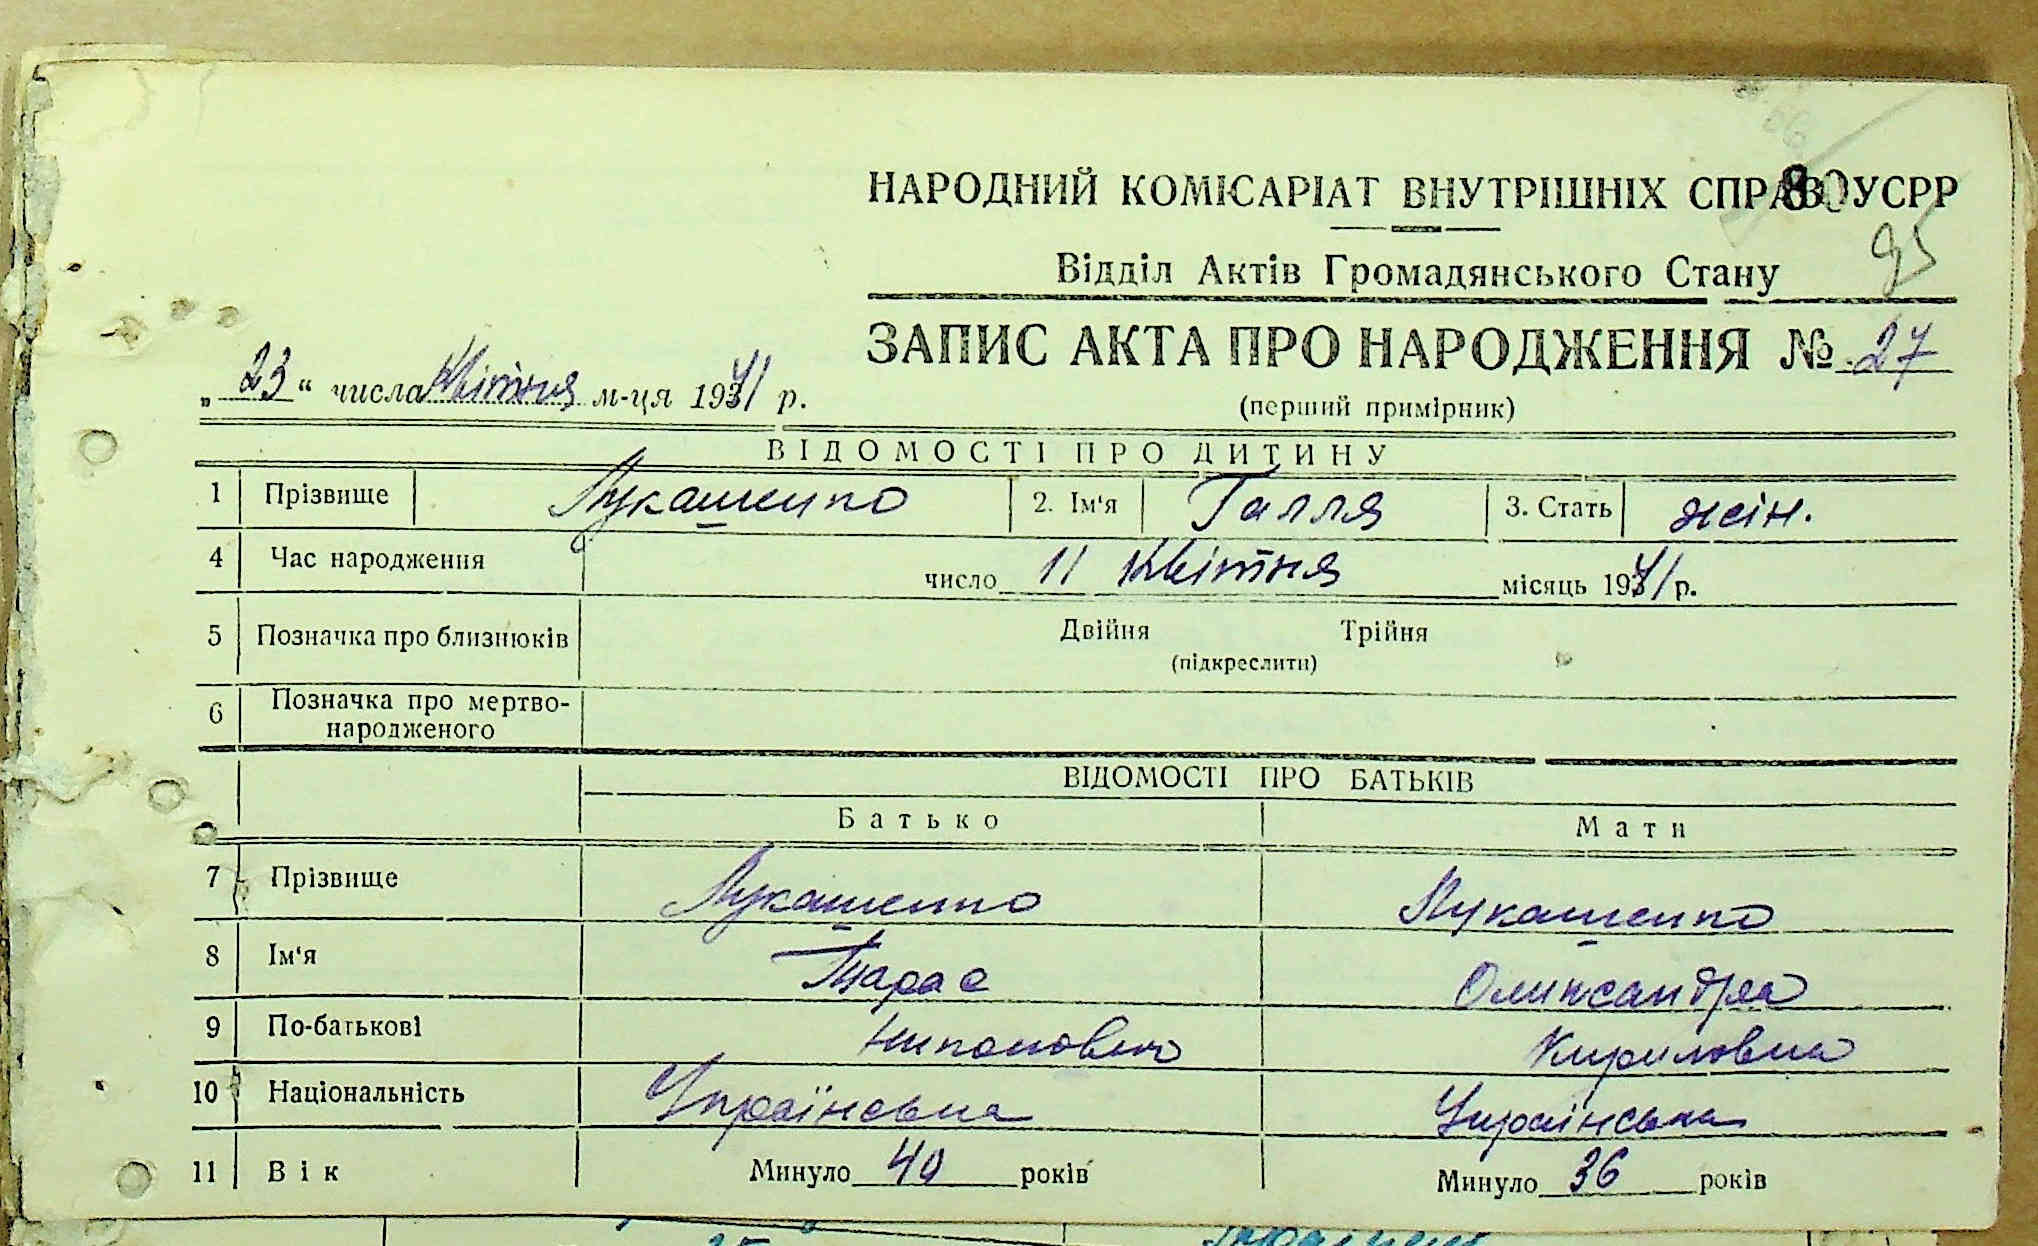 НАРОДНИЙ КОМІСАРІАТ ВНУТРІШНІХ СПРАВ УСРР
80
Відділ Актів Громадянського Стану
95
ЗАПИС АКТА ПРО НАРОДЖЕННЯ № 27
„ 23 “ числа Квітня м-ця 1941 р.
(перший примірник)
ВІДОМОСТІ ПРО ДИТИНУ
1 Прізвище Лукашенко 2. Ім‘я Галля 3. Стать жін.
4 Час народження число 11 Квітня місяць 1941 р.
5 Позначка про близнюків Двійня Трійня
(підкреслити)
6 Позначка про мертво-
народженого
ВІДОМОСТІ ПРО БАТЬКІВ
Батько Мати
7 Прізвище Лукашенко Лукашенко
8 Ім‘я Тарас Олександра
9 По-батькові Кириловна
10 Національність Українська Українська
11 Вік Минуло 40 років Минуло 36 років